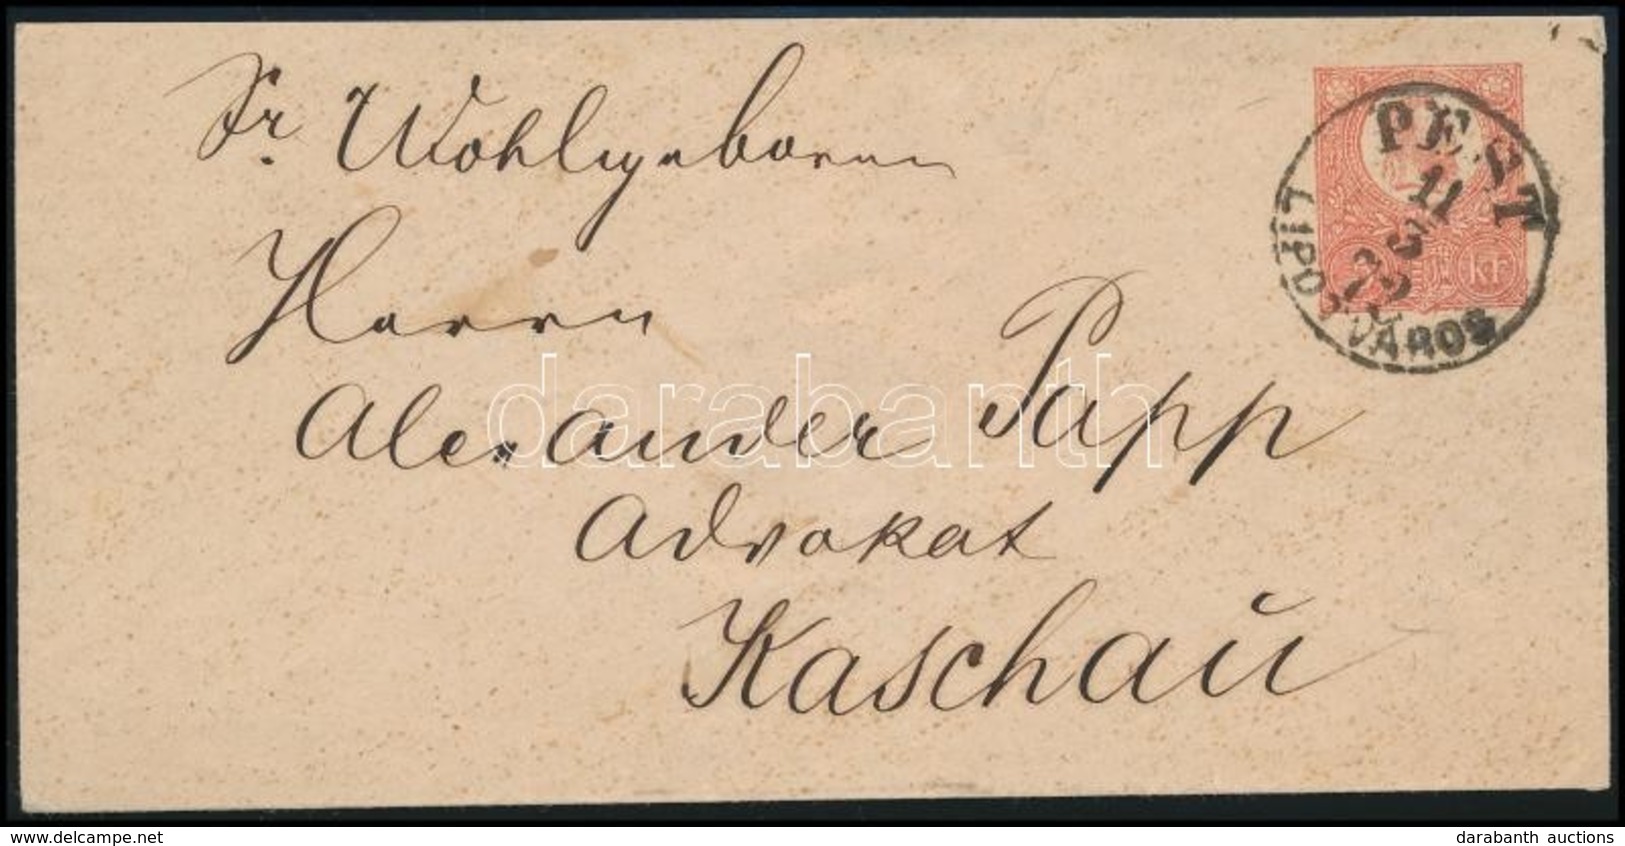 Sr. Wohlgeboren
Herrn
Alexander Papp
Advokat
Kaschau
PEST
11
LIPOTVÁROS
KR
darabanth
www.delcampe.net
darabanth auctions